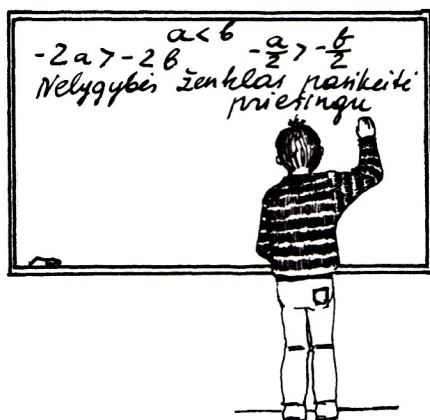 a < b
-2a > -2b   -a/2 > -b/2
Nelygybės ženklas pasikeitė
priešingu